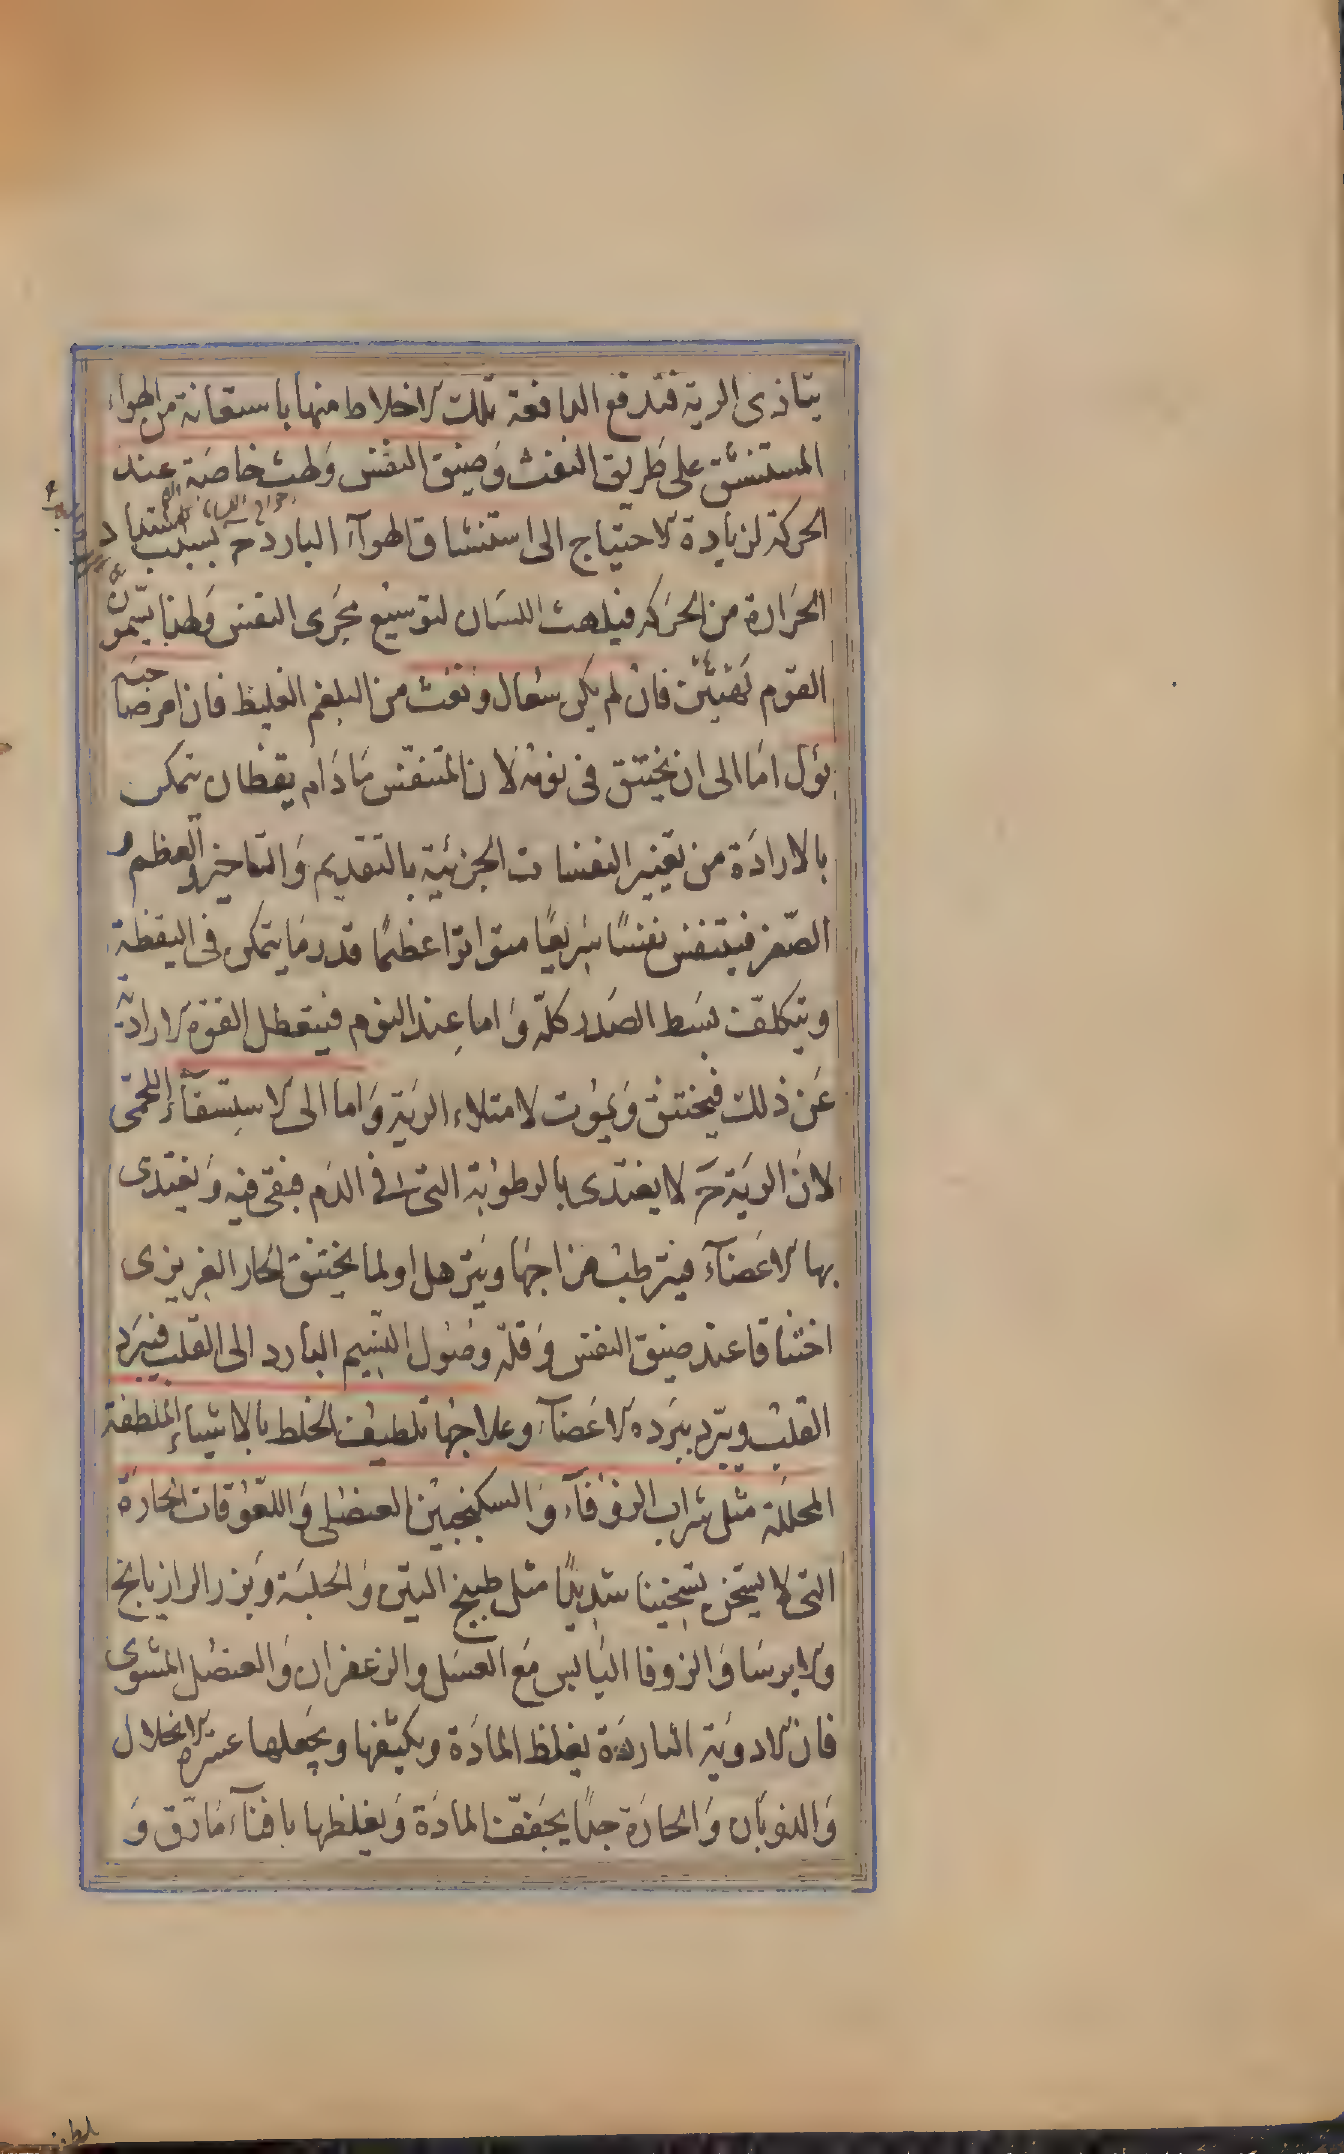 يتاذى الرية فتدفع الدافعة تلك الاخلاط منها باستعانة من الهواء
المستنشق على طريق النفث وضيق النفس ولهث خاصة عند
الحركة لزيادة الاحتياج الى استنشاق الهوآء البارد ح بسبب اشتداد
الحرارة من الحركه فيلهث اللسان لتوسيع مجرى النفس ولهذا يسمون
القوم لهثين فان لم يكن سعال ونفث من البلغم الغليظ فان امر صاحبه
يؤل اما الى ان يختنق فى نومه لان المتنفس ما دام يقظان يتمكن
بالارادة من تغيير النفسات الجزئية بالتقديم والتاخير والعظم و
الصغر فيتنفس نفسًا سريعًا متواترا عظيمًا قدر ما يتمكن فى اليقظة
ويتكلف بسط الصدر كله واما عند النوم فيتعطل القوة الارادية
عن ذلك فيختنق ويموت لامتلاء الرية واما الى الاستسقآء اللحمى
لان الرية ح لا يغتذى بالرطوبة التى فى الدم فيبقى فيه ويغتذى
بها الاعضآء فيترطب مزاجها ويترهل او لما يختنق الحار الغريزى
اختناقا عند ضيق النفس وقلة وصول النسيم البارد الى القلب فيبرد
القلب ويبرد ببرده الاعضآء وعلاجها تلطيف الخلط بالاشياء الملطفة
المحللة مثل شراب الزوفآء والسكنجبين العنصلى واللعوقات الحارة
التى لا يسخن تسخينا شديدًا مثل طبيخ التين والحلبة وبزر الرازيانج
والايرسا والزوفا اليابس مع العسل والزعفران والعنصل المشوى
فان الادوية الباردة يغلظ المادة ويكثفها ويجعلها عسرة الانحلال
والذوبان والحارة جدًا يجفف المادة ويغلظها بافناء ما رق و